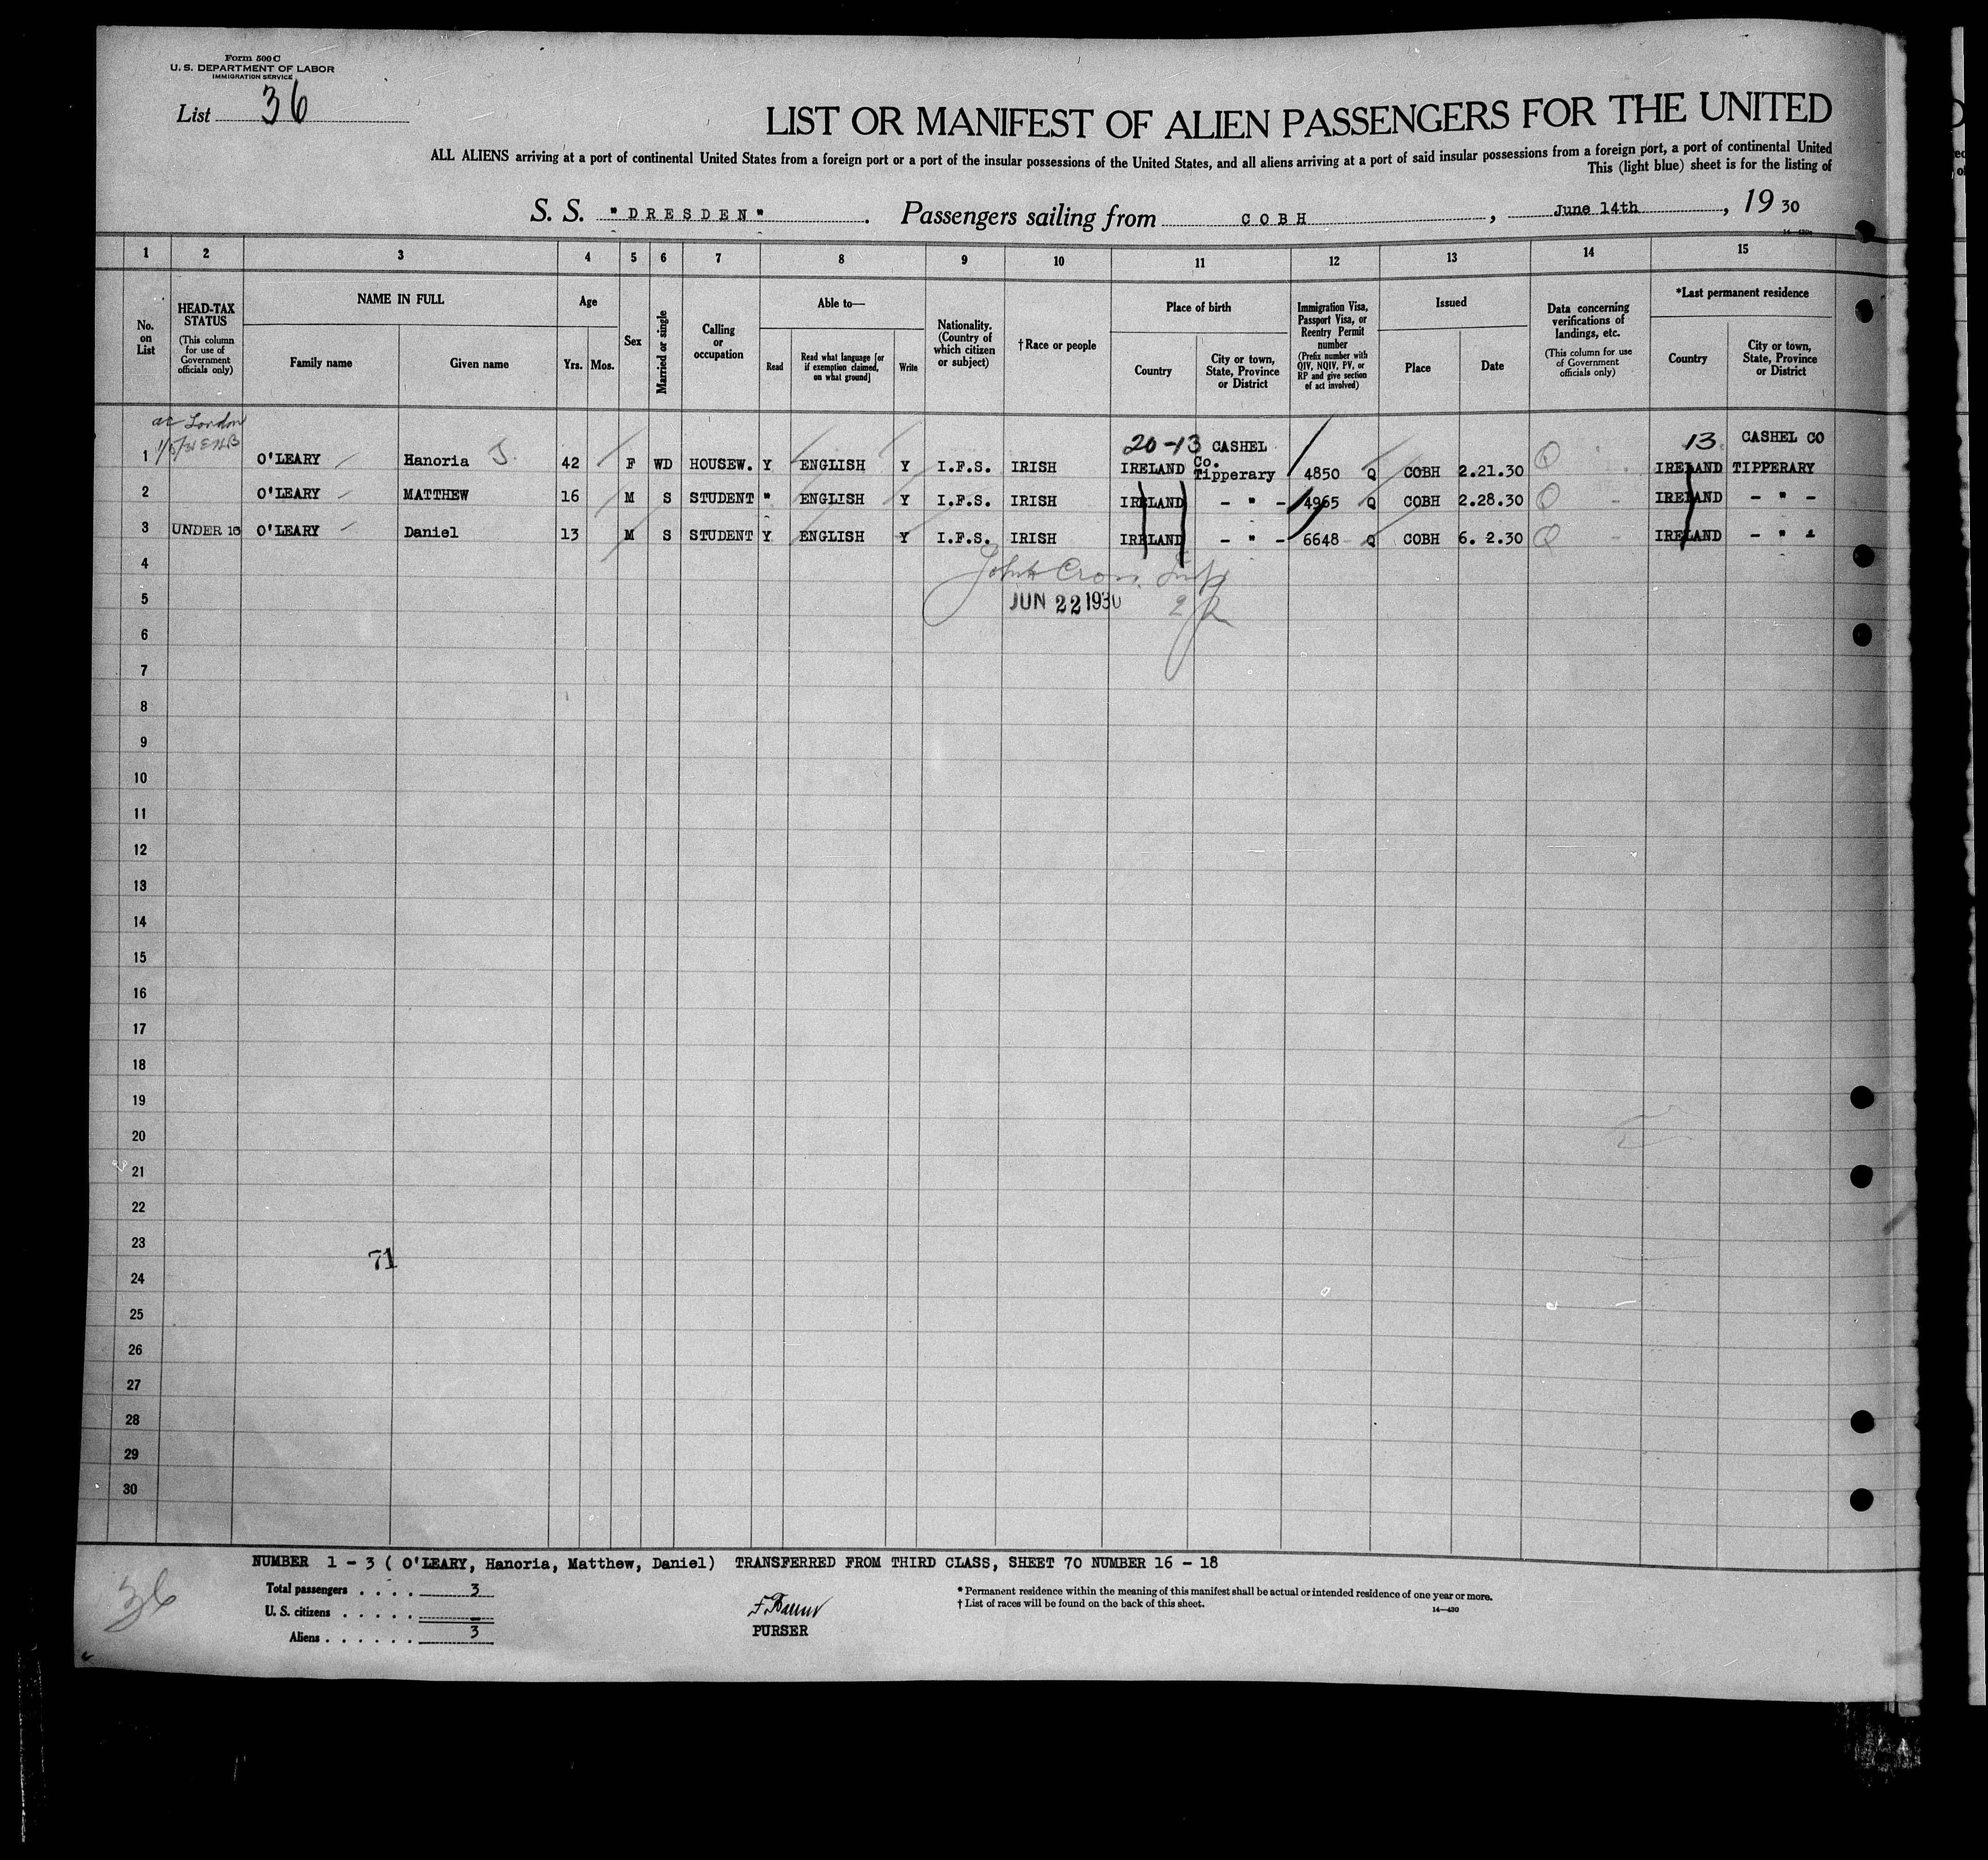 Form 500 C
U. S. DEPARTMENT OF LABOR
IMMIGRATION SERVICE
List 36
LIST OR MANIFEST OF ALIEN PASSENGERS FOR THE UNITED
ALL ALIENS arriving at a port of continental United States from a foreign port or a port of the insular possessions of the United States, and all aliens arriving at a port of said insular possessions from a foreign port, a port of continental United
This (light blue) sheet is for the listing of
S. S. "DRESDEN". Passengers sailing from COBH, June 14th, 19 30
1 2 3 4 5 6 7 8 9 10 11 12 13 14 15
No. on List
HEAD-TAX STATUS (This column for use of Government officials only)
NAME IN FULL
Family name
Given name
Age
Yrs. Mos.
Sex
Married or single
Calling or occupation
Able to—
Read
Read what language [or if exemption claimed, on what ground]
Write
Nationality. (Country of which citizen or subject)
† Race or people
Place of birth
Country
City or town, State, Province or District
Immigration Visa, Passport Visa, or Reentry Permit number (Prefix number with QIV, NQIV, PV, or RP and give section of act involved)
Issued
Place
Date
Data concerning verifications of landings, etc. (This column for use of Government officials only)
*Last permanent residence
Country
City or town, State, Province or District
London
20-13 CASHEL 13 CASHEL CO
1 O'LEARY Hanoria J. 42 F WD HOUSEW. Y ENGLISH Y I.F.S. IRISH IRELAND Co. Tipperary 4850 Q COBH 2.21.30 Q IRELAND TIPPERARY
2 O'LEARY MATTHEW 16 M S STUDENT " ENGLISH Y I.F.S. IRISH IRELAND - " - 4965 Q COBH 2.28.30 Q IRELAND - " -
3 UNDER 16 O'LEARY Daniel 13 M S STUDENT Y ENGLISH Y I.F.S. IRISH IRELAND - " - 6648 Q COBH 6. 2.30 Q IRELAND - "
4
5 JUN 22 1930
6
7
8
9
10
11
12
13
14
15
16
17
18
19
20
21
22
23
71
24
25
26
27
28
29
30
NUMBER 1 - 3 ( O'LEARY, Hanoria, Matthew, Daniel) TRANSFERRED FROM THIRD CLASS, SHEET 70 NUMBER 16 - 18
36
Total passengers . . . . 3
U. S. citizens . . . . . -
Aliens . . . . . . 3
PURSER
* Permanent residence within the meaning of this manifest shall be actual or intended residence of one year or more.
† List of races will be found on the back of this sheet.
14—430